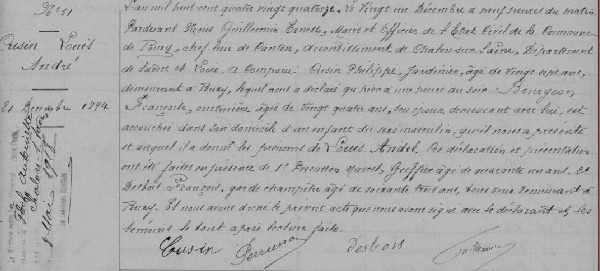 N° 51
Cusin Louis
André
21 Décembre 1894
8 Mai 1918
L'an mil huit cent quatre vingt quatorze. Le Vingt un Décembre à neuf heures du matin
Pardevant Nous Guillemin Ernest, Maire et Officier de l'Etat Civil de la Commune
de Buxy, chef lieu de Canton, arrondissement de Chalon sur Saône, Département
de Saône et Loire. a Comparu: Cusin Philippe, Jardinier, âgé de Vingt sept ans,
demeurant à Buxy, lequel nous a déclaré qu'hier à une heure du soir Bourgeon
Françoise, couturière âgée de Vingt quatre ans, son épouse, demeurant avec lui, est
accouchée dans son domicile d'un enfant du sexe masculin, qu'il nous a présenté
et auquel il a donné les prénoms de Louis André. Ces déclaration et présentation
ont été faites en présence de 1° Perrusson Greffier âgé de quarante un ans. 2°
Desbois François, garde champêtre âgé de soixante trois ans, tous deux demeurant à
Buxy. Et nous avons dressé le présent acte que nous avons signé avec le déclarant et les
témoins le tout après lecture faite.
Cusin Perrusson Desbois